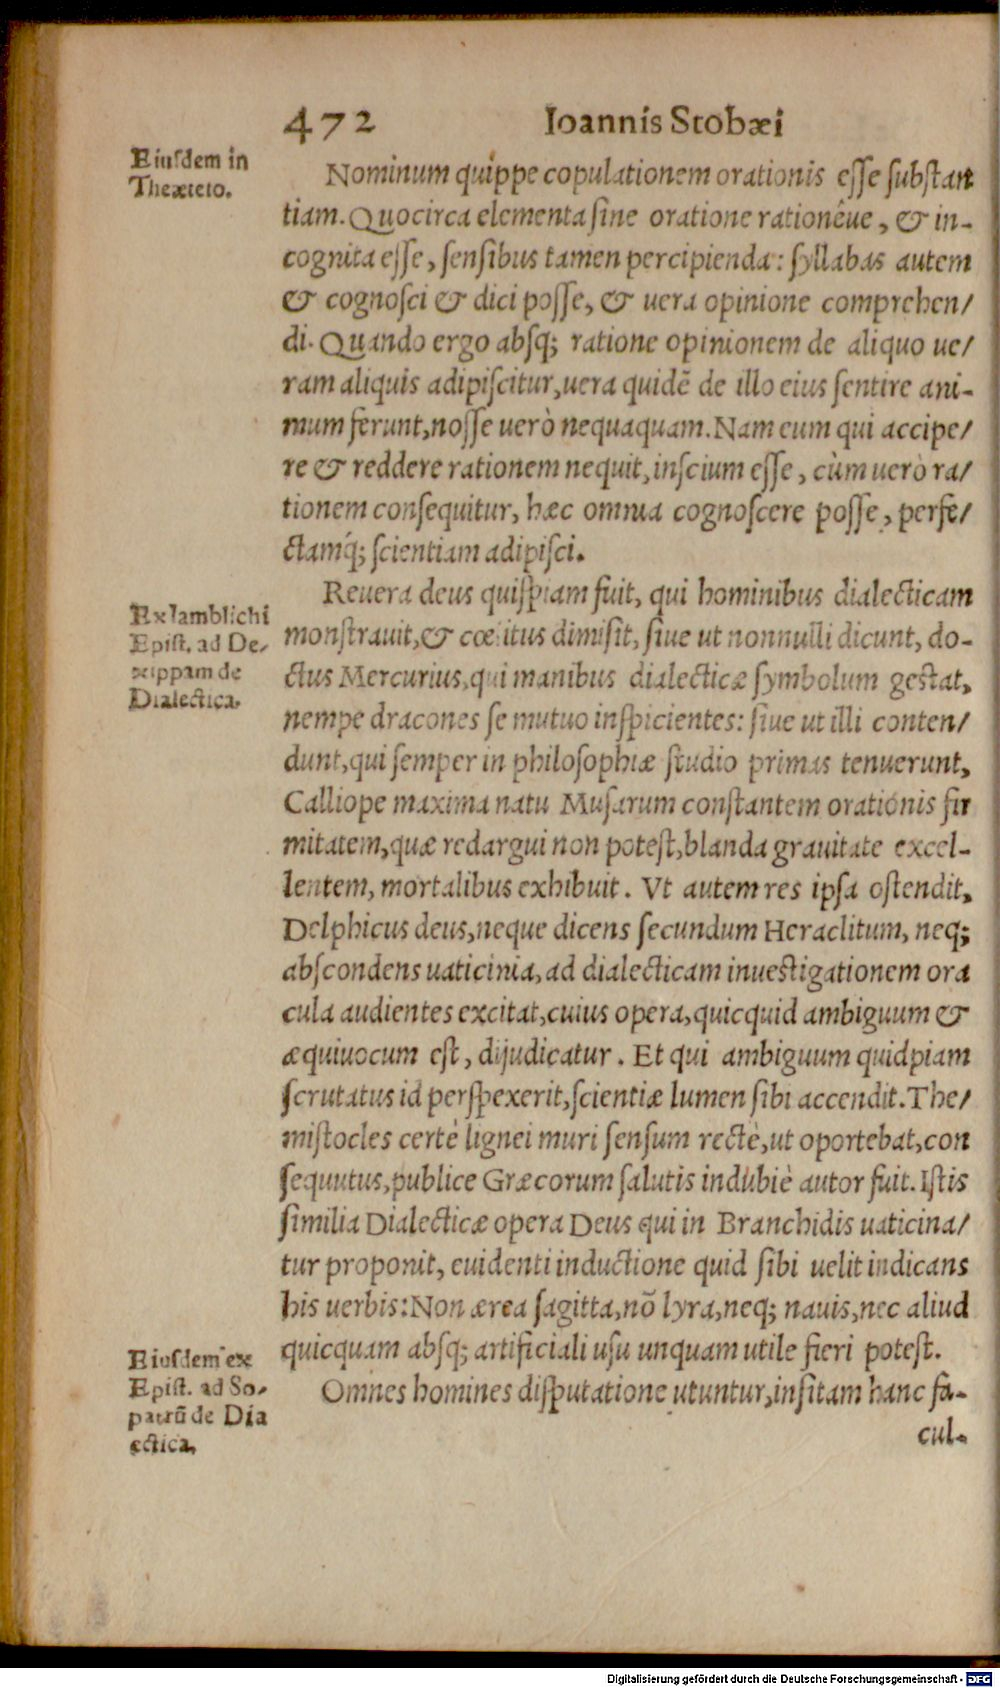 472 Ioannis Stobæi
Eiuſdem in
Theæteto.
Nominum quippe copulationem orationis eſſe ſubſtan
tiam. Quocirca elementa ſine oratione rationêue, & in-
cognita eſſe, ſenſibus tamen percipienda: ſyllabas autem
& cognoſci & dici poſſe, & uera opinione comprehen/
di. Quando ergo abſq; ratione opinionem de aliquo ue/
ram aliquis adipiſcitur, uera quidē de illo eius ſentire ani-
mum ferunt, noſſe uerò nequaquam. Nam eum qui accipe/
re & reddere rationem nequit, inſcium eſſe, cùm uerò ra/
tionem conſequitur, hæc omnia cognoſcere poſſe, perfe/
ctamq́; ſcientiam adipiſci.
Ex Iamblichi
Epiſt. ad De-
xippam de
Dialectica.
Reuera deus quiſpiam fuit, qui hominibus dialecticam
monſtrauit, & cœlitus dimiſit, ſiue ut nonnulli dicunt, do-
ctus Mercurius, qui manibus dialecticæ ſymbolum geſtat,
nempe dracones ſe mutuo inſpicientes: ſiue ut illi conten/
dunt, qui ſemper in philoſophiæ ſtudio primas tenuerunt,
Calliope maxima natu Muſarum conſtantem orationis fir
mitatem, quæ redargui non poteſt, blanda grauitate excel-
lentem, mortalibus exhibuit. Vt autem res ipſa oſtendit,
Delphicus deus, neque dicens ſecundum Heraclitum, neq;
abſcondens uaticinia, ad dialecticam inueſtigationem ora
cula audientes excitat, cuius opera, quicquid ambiguum &
æquiuocum eſt, dijudicatur. Et qui ambiguum quidpiam
ſcrutatus id perſpexerit, ſcientiæ lumen ſibi accendit. The/
miſtocles certè lignei muri ſenſum rectè, ut oportebat, con
ſequutus, publice Græcorum ſalutis indubiè autor fuit. Iſtis
ſimilia Dialecticæ opera Deus qui in Branchidis uaticina/
tur proponit, euidenti inductione quid ſibi uelit indicans
his uerbis: Non ærea ſagitta, nō lyra, neq; nauis, nec aliud
quicquam abſq; artificiali uſu unquam utile fieri poteſt.
Eiuſdem ex
Epiſt. ad So-
patrū de Dia
ectica.
Omnes homines diſputatione utuntur, inſitam hanc fa-
cul-
Digitalisierung gefördert durch die Deutsche Forschungsgemeinschaft - DFG